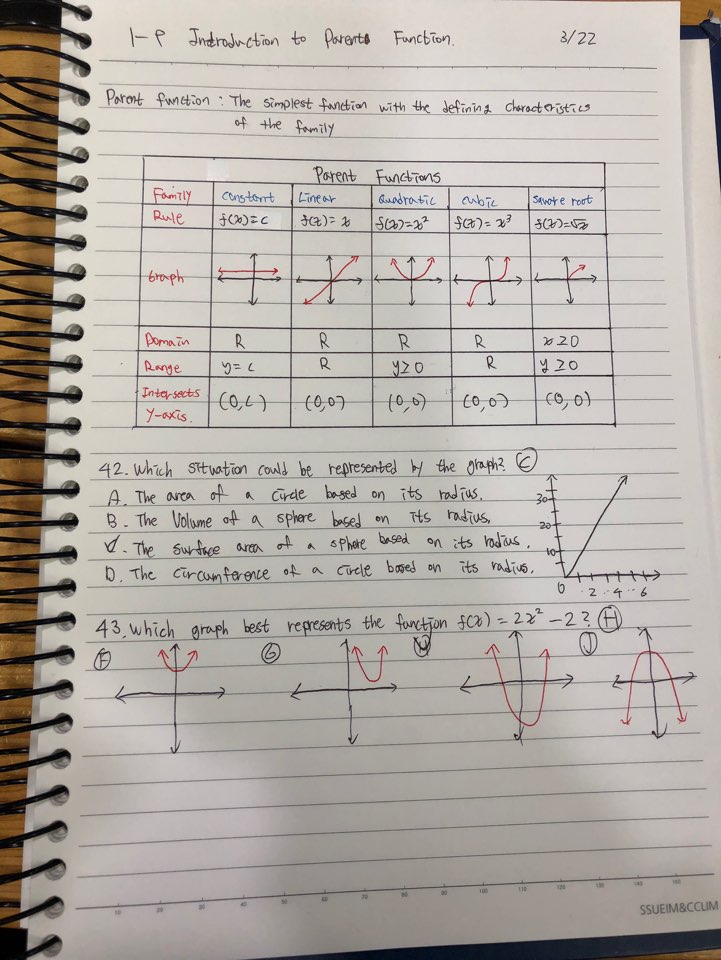 1-9 Indroduction to Parents Function. 3/22
Parent function : The simplest function with the defining characteristics
of the family
Parent Functions
Family constant Linear Quadratic cubic Square root
Rule f(x)=c f(x)=x f(x)=x² f(x)=x³ f(x)=√x
Graph
Domain R R R R x≥0
Range y=c R y≥0 R y≥0
Intersects
Y-axis. (0,c) (0,0) (0,0) (0,0) (0,0)
42. Which situation could be represented by the graph? C
A. The area of a circle based on its radius.
B. The Volume of a sphere based on its radius.
C. The surface area of a sphere based on its radius.
D. The circumference of a circle based on its radius.
30
20
10
0 2 4 6
43. Which graph best represents the function f(x)=2x²-2? H
F G H J
10 20 30 40 50 60 70 80 90 100 110 120 130 140 150
SSUEIM&CCLIM